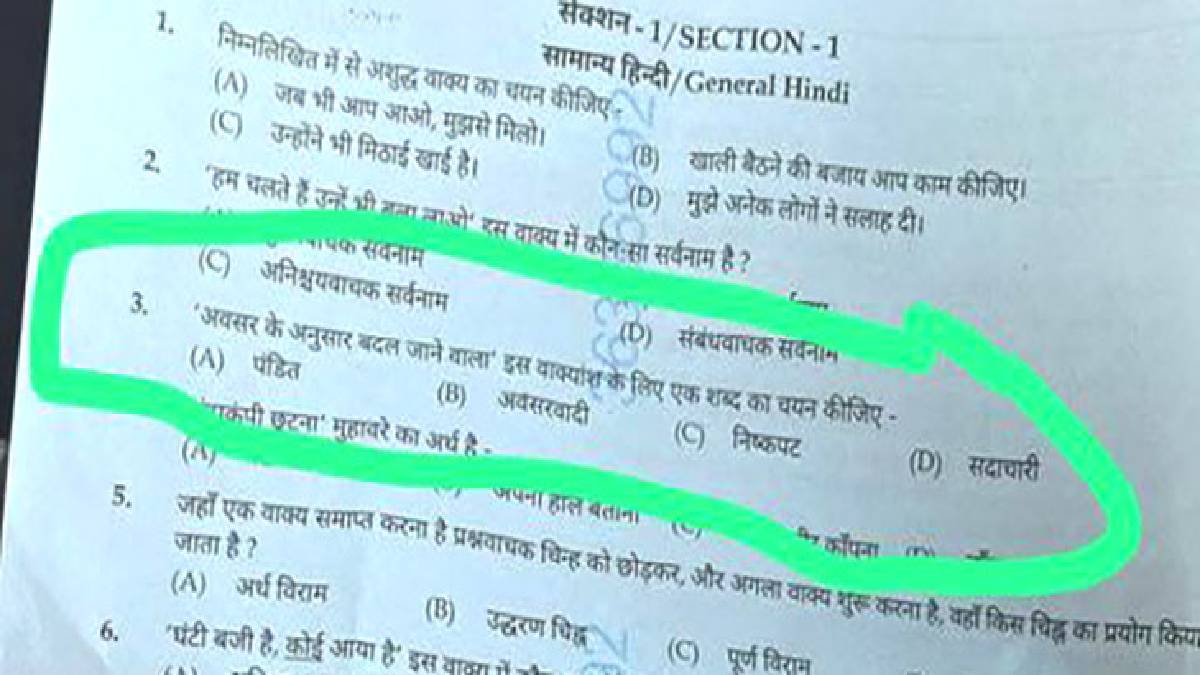 सेक्शन - 1/SECTION - 1
सामान्य हिन्दी/General Hindi
1. निम्नलिखित में से अशुद्ध वाक्य का चयन कीजिए -
(A) जब भी आप आओ, मुझसे मिलो।
(B) खाली बैठने की बजाय आप काम कीजिए।
(C) उन्होंने भी मिठाई खाई है।
(D) मुझे अनेक लोगों ने सलाह दी।
2. 'हम चलते हैं उन्हें भी बुला लाओ' इस वाक्य में कौन-सा सर्वनाम है ?
सर्वनाम
(C) अनिश्चयवाचक सर्वनाम
(D) संबंधवाचक सर्वनाम
3. 'अवसर के अनुसार बदल जाने वाला' इस वाक्यांश के लिए एक शब्द का चयन कीजिए -
(A) पंडित (B) अवसरवादी (C) निष्कपट (D) सदाचारी
छूटना' मुहावरे का अर्थ है -
(A) अपना हाल बताना (C) काँपना
5. जहाँ एक वाक्य समाप्त करना है प्रश्नवाचक चिन्ह को छोड़कर, और अगला वाक्य शुरू करना है, वहाँ किस चिह्न का प्रयोग किया
जाता है ?
(A) अर्ध विराम (B) उद्धरण चिह्न (C) पूर्ण विराम
6. 'घंटी बजी है, कोई आया है' इस वाक्य में